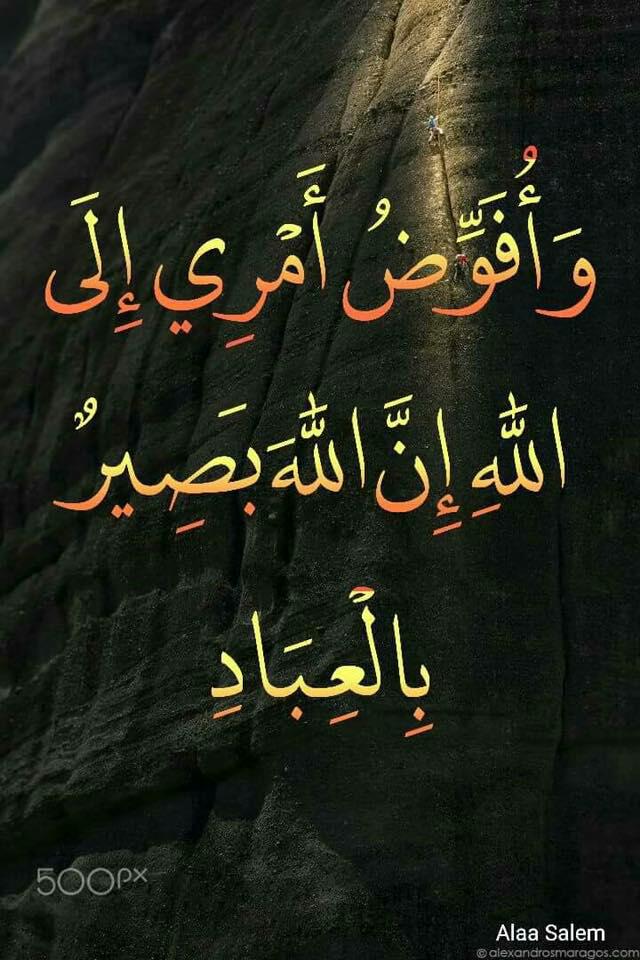 وَأُفَوِّضُ أَمْرِي إِلَى
اللَّهِ إِنَّ اللَّهَ بَصِيرٌ
بِالْعِبَادِ
500px
Alaa Salem
© alexandrosmaragos.com